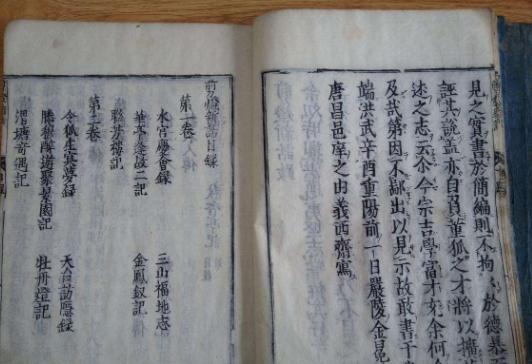 見之實書於簡編則不拘 於德恭至
誣其說蓋亦自負董狐之才將以擴
述之志云余今宗吉學富才充余何
及哉第因不鄙出以見示故敢書于
端洪武辛酉重陽前一日嚴陵金冕
唐昌邑庠之由義西齋寫
剪燈新話目録
第一卷
水宮慶會録 三山福地志
華亭逢故人記 金鳳釵記
聯芳樓記
第二卷
令狐生冥夢録 天台訪隱録
滕穆醉遊聚景園記 牡丹燈記
渭塘奇遇記